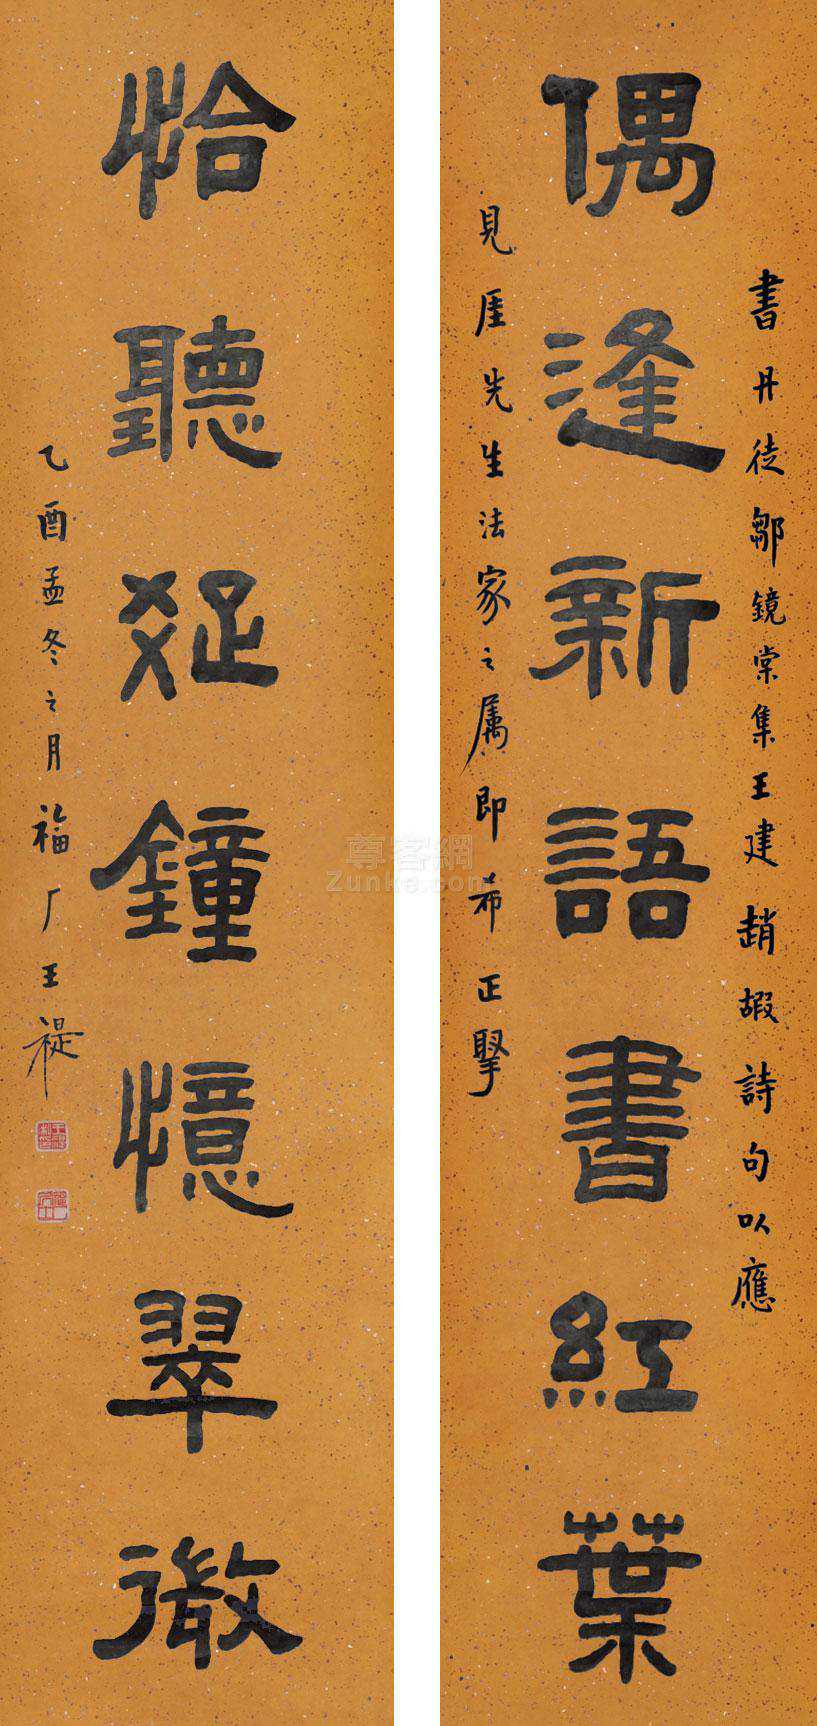 書丹徒鄒鏡棠集王建趙嘏詩句以應
偶逢新語書紅葉
見厓先生法家之属即希正掔
恰聽疏鐘憶翠微
乙酉孟冬之月福厂王禔
尊客網
Zunke.com